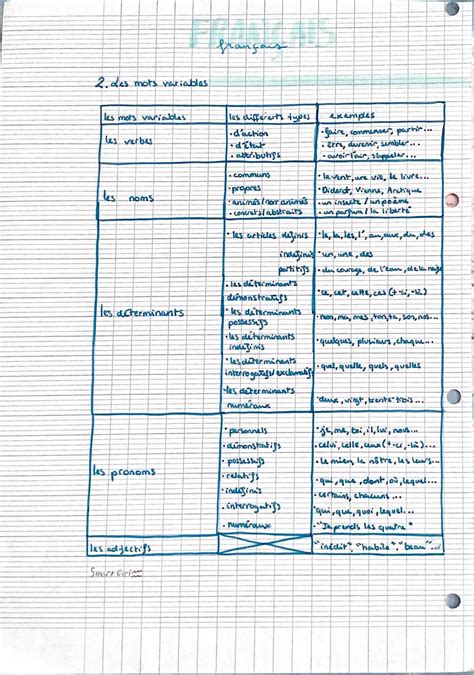 FRANÇAIS
français
2. Les mots variables
les mots variables | les différents types | exemples
les verbes | • d'action | • faire, commencer, partir...
• d'état | • être, devenir, sembler...
• attributifs | • avoir l'air, s'appeler...
les noms | • communs | • le vent, une vie, le livre...
• propres | • Diderot, Vienne, Arctique
• animés/non animés | • un insecte / un poème
• concrets/abstraits | • un parfum / la liberté
les déterminants | • les articles définis | • le, la, les, l', au, aux, du, des
indéfinis | • un, une, des
partitifs | • du courage, de l'eau, de la neige
• les déterminants démonstratifs | • ce, cet, cette, ces (+ -ci, -là)
• les déterminants possessifs | • mon, ma, mes, ton, ta, son, nos...
• les déterminants indéfinis | • quelques, plusieurs, chaque...
• les déterminants interrogatifs/exclamatifs | • quel, quelle, quels, quelles
• les déterminants numéraux | • deux, vingt, trente-trois...
les pronoms | • personnels | • je, me, toi, il, lui, nous...
• démonstratifs | • celui, celle, ceux (+ -ci, -là)...
• possessifs | • le mien, la nôtre, les leurs...
• relatifs | • qui, que, dont, où, lequel...
• indéfinis | • certains, chacuns...
• interrogatifs | • qui, que, quoi, lequel...
• numéraux | • "Je prends les quatre"
les adjectifs | "inédit", "habile", "beau"...
Smart Girl